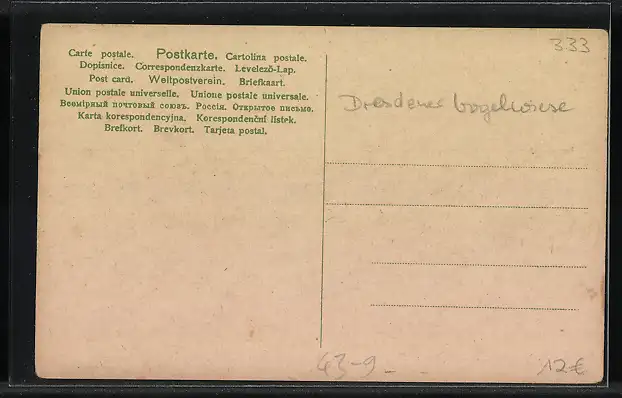 Carte postale. Postkarte. Cartolina postale.
Dopisnice. Correspondenzkarte. Levelező-Lap.
Post card. Weltpostverein. Briefkaart.
Union postale universelle. Unione postale universale.
Всемірный почтовый союзъ. Россія. Открытое письмо.
Karta korespondencyjna. Korespondenční lístek.
Brefkort. Brevkort. Tarjeta postal.
333
Dresdener Vogelwiese
43-9
12€